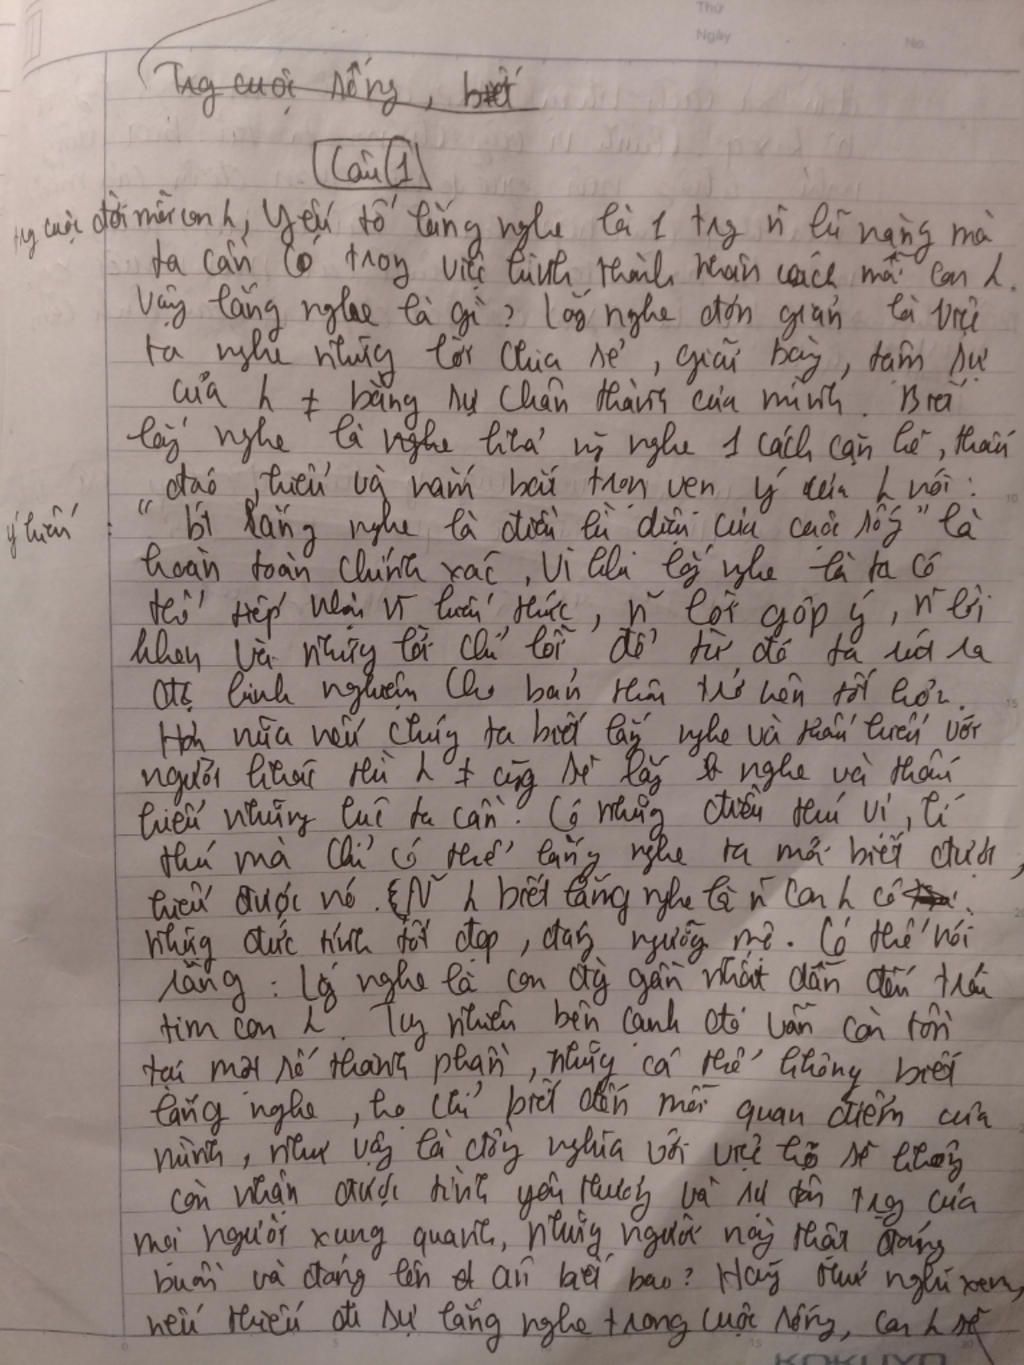 Thứ
Ngày
No.
Trg cuộc sống, biết
Câu 1
trg cuộc đời mỗi con h, yếu tố lắng nghe là 1 trg n~ kĩ năng mà
ta cần có trong việc hình thành nhân cách mỗi con h.
Vậy lắng nghe là gì? Lắg nghe đơn giản là việc
ta nghe những lời chia sẻ, giãi bày, tâm sự
của h ≠ bằng sự chân thành của mình. Biết
lắg nghe là nghe 1 cách cặn kẽ, thấu
đáo, hiểu và nắm bắt trọn vẹn ý của h nói.
ý kiến : "bí lắng nghe là điều kì diệu của cuộc sốg" là
hoàn toàn chính xác, vì khi lắg nghe là ta có
thể tiếp nhận kiến thức, n~ lời góp ý, n~ lời
khen và những lời chỉ lỗi để từ đó ta rút ra
đc kinh nghiệm cho bản thân trở nên tốt hơn.
Hơn nữa nếu chúng ta biết lắg nghe và thấu hiểu với
người khác thì h ≠ cũg sẽ lắg nghe và thấu
hiểu những lúc ta cần. Có những điều thú vị, lí
thú mà chỉ có thể lắng nghe ta mới biết được,
hiểu được nó. N~ h biết lắng nghe là n~ con h có
những đức tính tốt đẹp, đág ngưỡg mộ. Có thể nói
rằng: Lắg nghe là con đg gần nhất dẫn đến trái
tim con h. Tuy nhiên bên cạnh đó vẫn còn tồn
tại một số thành phần, những cá thể không biết
lắng nghe, họ chỉ biết đến mỗi quan điểm của
mình, như vậy là đồg nghĩa với việc họ sẽ khôg
còn nhận được tình yêu thươg và sự tôn trọg của
mọi người xung quanh, những người này thật đáng
buồn và đáng lên án biết bao? Hãy thử nghĩ xem,
nếu thiếu đi sự lắng nghe trong cuộc sống, con h sẽ
KOKUYO